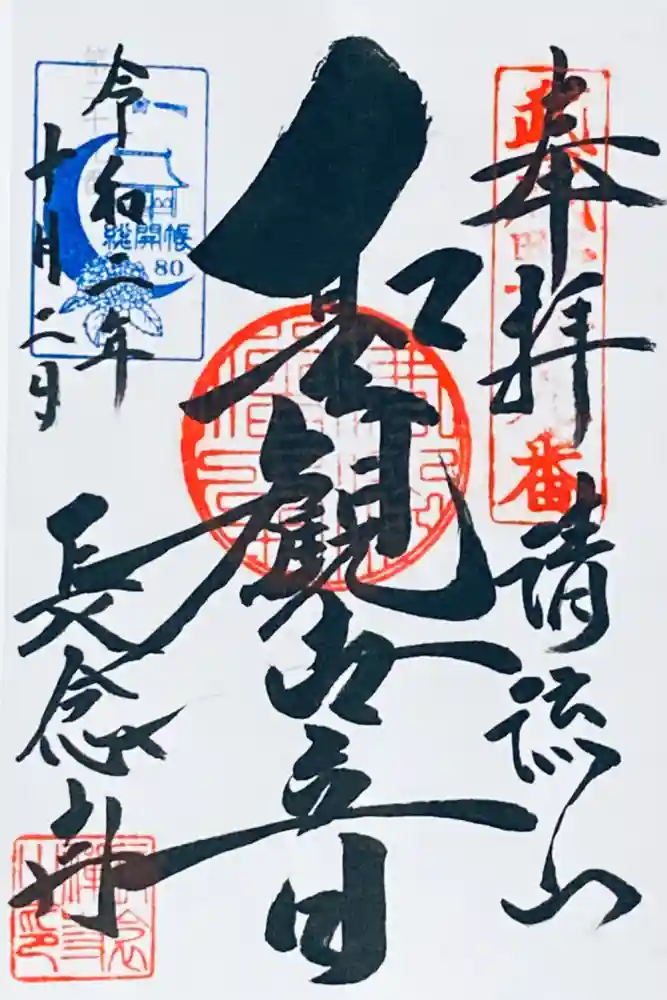 奉拝
清流山
聖觀世音
令和二年
十月二日
長念寺
番
総開帳
80